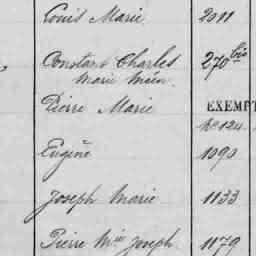 Louis Marie 2011
Constant Charles 270 bis
Marie Méen
Pierre Marie EXEMPT
No 124.
Eugène 1090
Joseph Marie 1133
Pierre Mie Joseph 1179